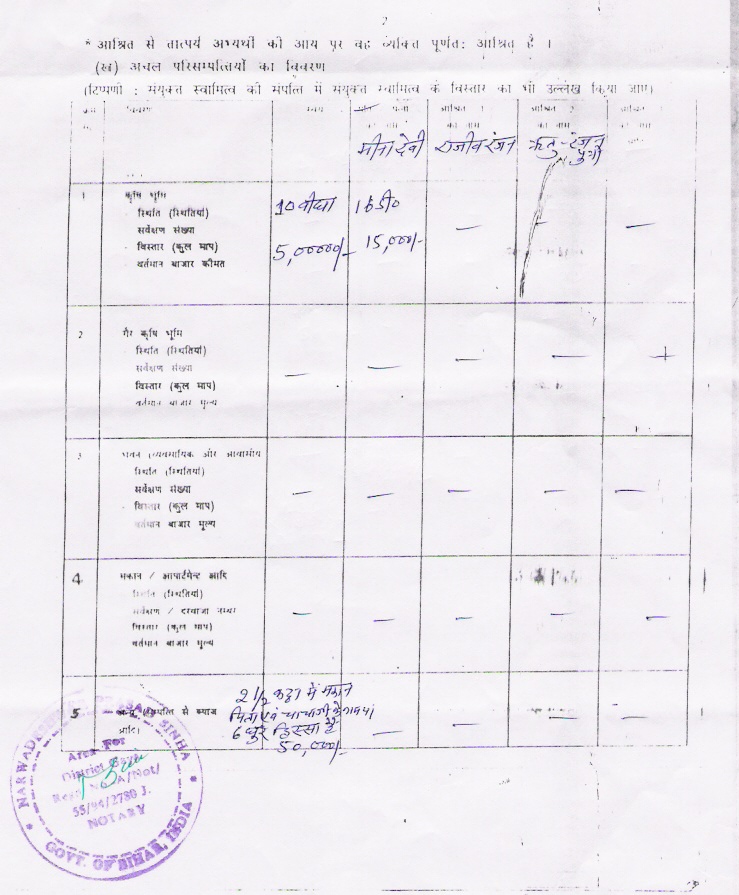 2
* आश्रित से तात्पर्य अभ्यर्थी की आय पर वह व्यक्ति पूर्णत: आश्रित है ।
(ख) अचल परिसम्पत्तियों का विवरण
(टिप्पणी : संयुक्त स्वामित्व की संपत्ति में संयुक्त स्वामित्व के विस्तार का भी उल्लेख किया जाए)
क्रम विवरण स्वयं आश्रित 1 आश्रित 2 आश्रित
का नाम का नाम
मीना देवी राजीव रंजन ऋतु-रंजन
पुत्री
1 कृषि भूमि
स्थिति (स्थितियां) 10 बीघा 16डी०
सर्वेक्षण संख्या
विस्तार (कुल माप) 5,00000/- 15,000/-
वर्तमान बाजार कीमत
2 गैर कृषि भूमि
स्थिति (स्थितियां)
सर्वेक्षण संख्या
विस्तार (कुल माप)
वर्तमान बाजार मूल्य
3 भवन (व्यवसायिक और आवासीय
स्थिति (स्थितियां)
सर्वेक्षण संख्या
विस्तार (कुल माप)
वर्तमान बाजार मूल्य
4 मकान / आपार्टमेन्ट आदि
स्थिति (स्थितियां)
सर्वेक्षण / दरवाजा नम्बर
विस्तार (कुल माप)
वर्तमान बाजार मूल्य
2 1/2 कट्ठा में मकान
5 अन्य सम्पत्ति से ब्याज पिता एवं चाचाजी के
आदि) 6 धुर हिस्सा है
50,000/-
SINHA
Area For
District
55/94/2780 J.
NOTARY
GOVT. OF BIHAR, INDIA